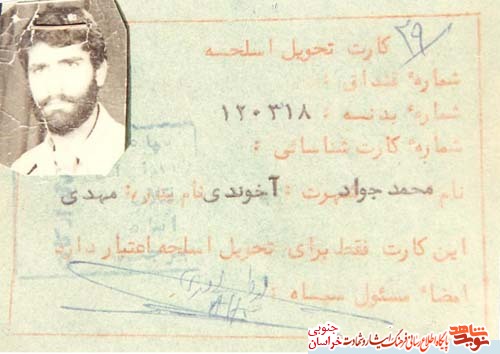 ۲۹
کارت تحویل اسلحه
شماره قنداق :
شماره بدنه : ۱۲۰۳۱۸
شماره کارت شناسائی :
نام محمدجواد شهرت : آخوندی نام پدر : مهدی
این کارت فقط برای تحویل اسلحه اعتبار دارد.
امضاء مسئول سپاه :
نوید شاهد
پایگاه اطلاع رسانی فرهنگ ایثار و شهادت
خراسان جنوبی